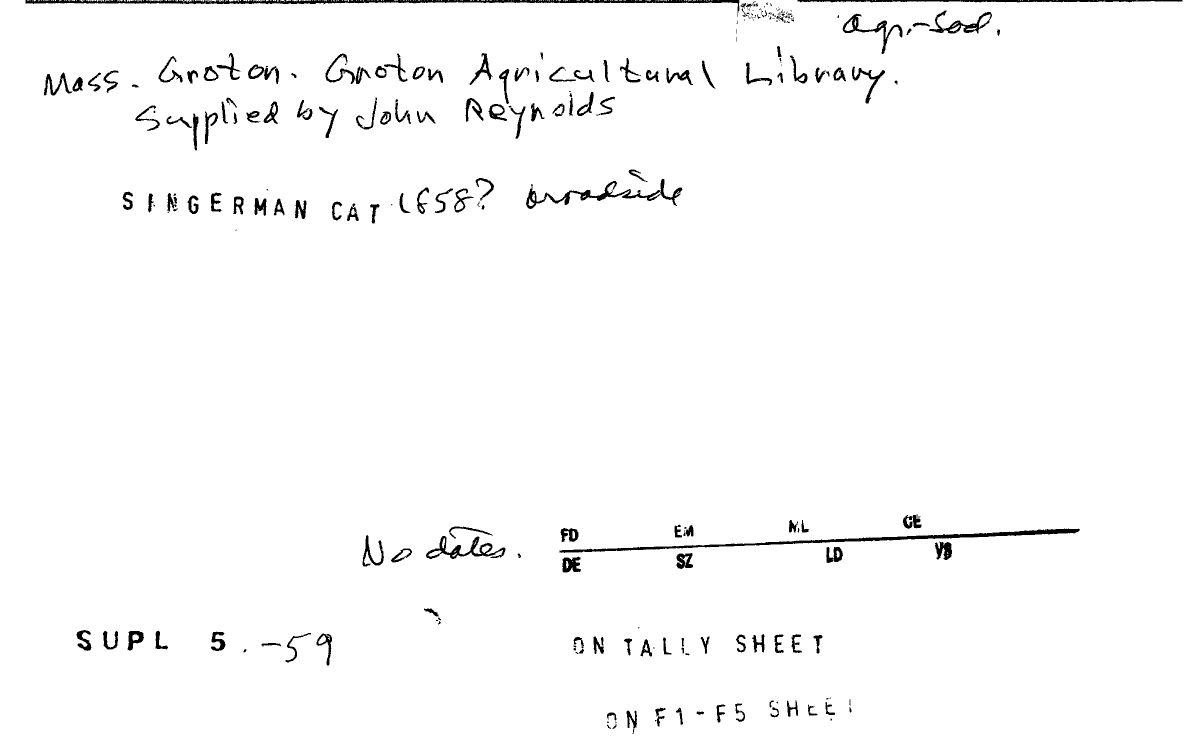 Agr.-Sod.
Mass. Groton. Groton Agricultural Library.
Supplied by John Reynolds
SINGERMAN CAT 1858? broadside
No dates. FD EM ML CE
DE SZ LD VB
SUPL 5.-59 ON TALLY SHEET
ON F1-F5 SHEET